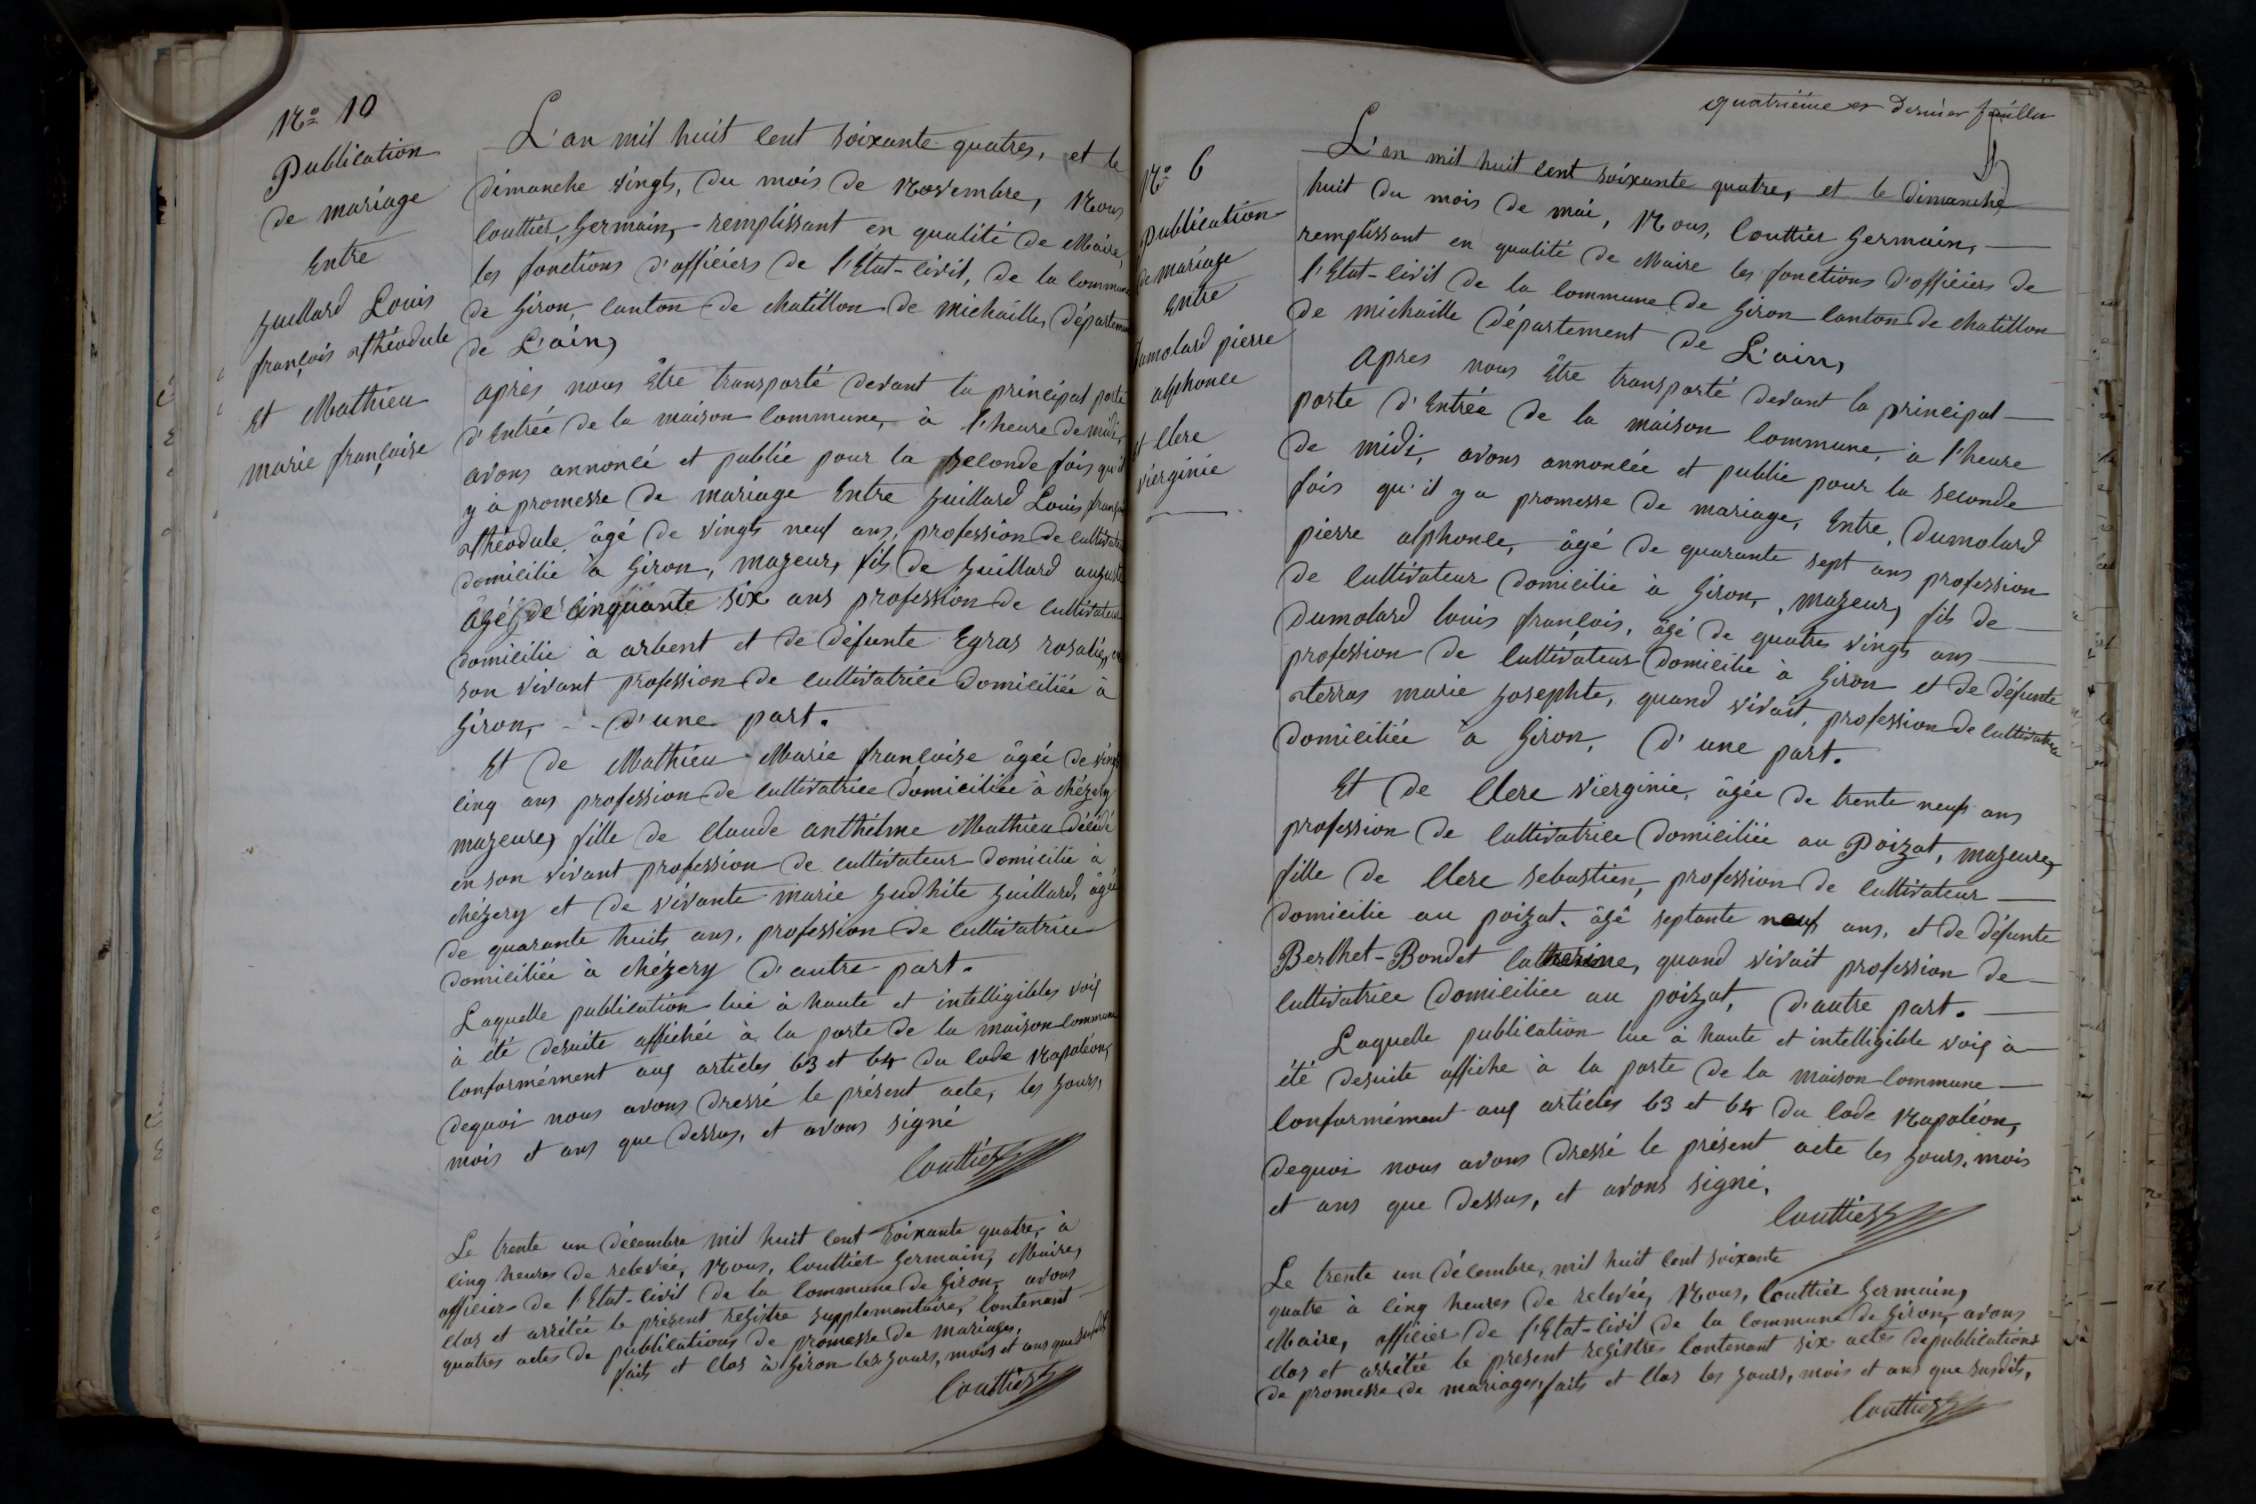 N.º 10
Publication
de mariage
Entre
Juillard Louis
françois théodule
Et Mathieu
marie françoise
L'an mil huit cent soixante quatres, et le
dimanche vingts, du mois de Novembre, Nous
Couttier, Germain, remplissant en qualité de Maire,
les fonctions d'officiers de l'État-Civil, de la commune
de Giron, Canton de chatillon de michaille, Département
de L'ain,
après nous être transporté devant la principal porte
d'Entrée de la maison Commune, à l'heure de midi,
avons annoncé et publié pour la seconde fois qu'il
y à promesse de mariage Entre Juillard Louis françois
théodule, âgé de vingts neuf ans, profession de cultivateur
domicilié à Giron, mageur, fils de Juillard auguste
âgé de Cinquante six ans profession de cultivateur
domicilié à arbent et de défunte Egras rosalie, en
son vivant profession de cultivatrice domiciliée à
Giron, - - d'une part.
Et de Mathieu Marie françoise âgée de vingt
cinq ans profession de cultivatrice domiciliée à chézery
mageure, fille de Claude anthelme Mathieu décédé
en son vivant profession de cultivateur domicilié à
chézery et de vivante marie Judhite Juillard, âgée
de quarante huits ans, profession de cultivatrice
domiciliée à chézery d'autre part.
Laquelle publication lue à haute et intelligibles voix
à été desuite affichée à la porte de la maison Commune
Conformément aux articles 63 et 64 du Code Napoléon,
dequoi nous avons dressé le présent acte, les jours,
mois et ans que dessus, et avons signé
Couttier
Le trente un décembre mil huit cent soixante quatre, à
cinq heures de relevée, Nous, Couttier Germain, Maire,
officier de l'Etat-Civil de la Commune de Giron, avons
clos et arrêtée le présent registre supplementaire, Contenant
quatres actes de publications de promesse de mariages,
faits et clos à Giron les jours, mois et ans que susdits
Couttier
quatriéme et Dernier feuillet
N.º 6
publication
de mariage
entre
Dumolard pierre
alphonce
et Clerc
vierginie
L'an mil huit cent soixante quatre, et le dimanche
huit du mois de mai, Nous, Couttier Germain,
remplissant en qualité de Maire les fonctions d'officiers de
l'Etat-Civil de la Commune de Giron Canton de chatillon
de michaille département de L'ain,
Apres nous être transporté devant la principal
porte d'Entrée de la maison Commune, à l'heure
de midi, avons annoncée et publie pour la seconde
fois qu'il y a promesse de mariage, Entre, Dumolard
pierre alphonce, âgé de quarante sept ans profession
de Cultivateur domicilié à Giron, mageur, fils de
Dumolard louis françois, âgé de quatre vingts ans
profession de Cultivateur domicilié à Giron et de défunte
terras marie Josephte, quand vivait, profession de Cultivatrice
domiciliée à Giron, d'une part.
Et de Clerc vierginie, âgée de trente neuf ans
profession de Cultivatrice domiciliée au Poizat, mageure,
fille de Clerc sebastien, profession de Cultivateur
domicilie au poizat, âgé septante neuf ans, et de défunte
Berthet-Bondet Catherine, quand vivait profession de
Cultivatrice domiciliée au poizat, d'autre part.
Laquelle publication lue à haute et intelligible voix à
été desuite affiche à la porte de la maison Commune
Conformément aux articles 63 et 64 du Code Napoléon,
dequoi nous avons dressé le présent acte les jours, mois
et ans que dessus, et avons signé,
Couttier
Le trente un décembre, mil huit cent soixante
quatre à cinq heures de relevée, Nous, Couttier Germain,
Maire, officier de l'Etat-Civil de la Commune de Giron, avons
clos et arrêtée le present registres Contenant six actes depublications
de promesse de mariages, faits et clos les jours, mois et ans que susdits,
Couttier